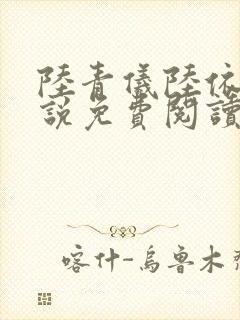 陸青儀陸依
說免費閱讀
喀什-烏魯木齊